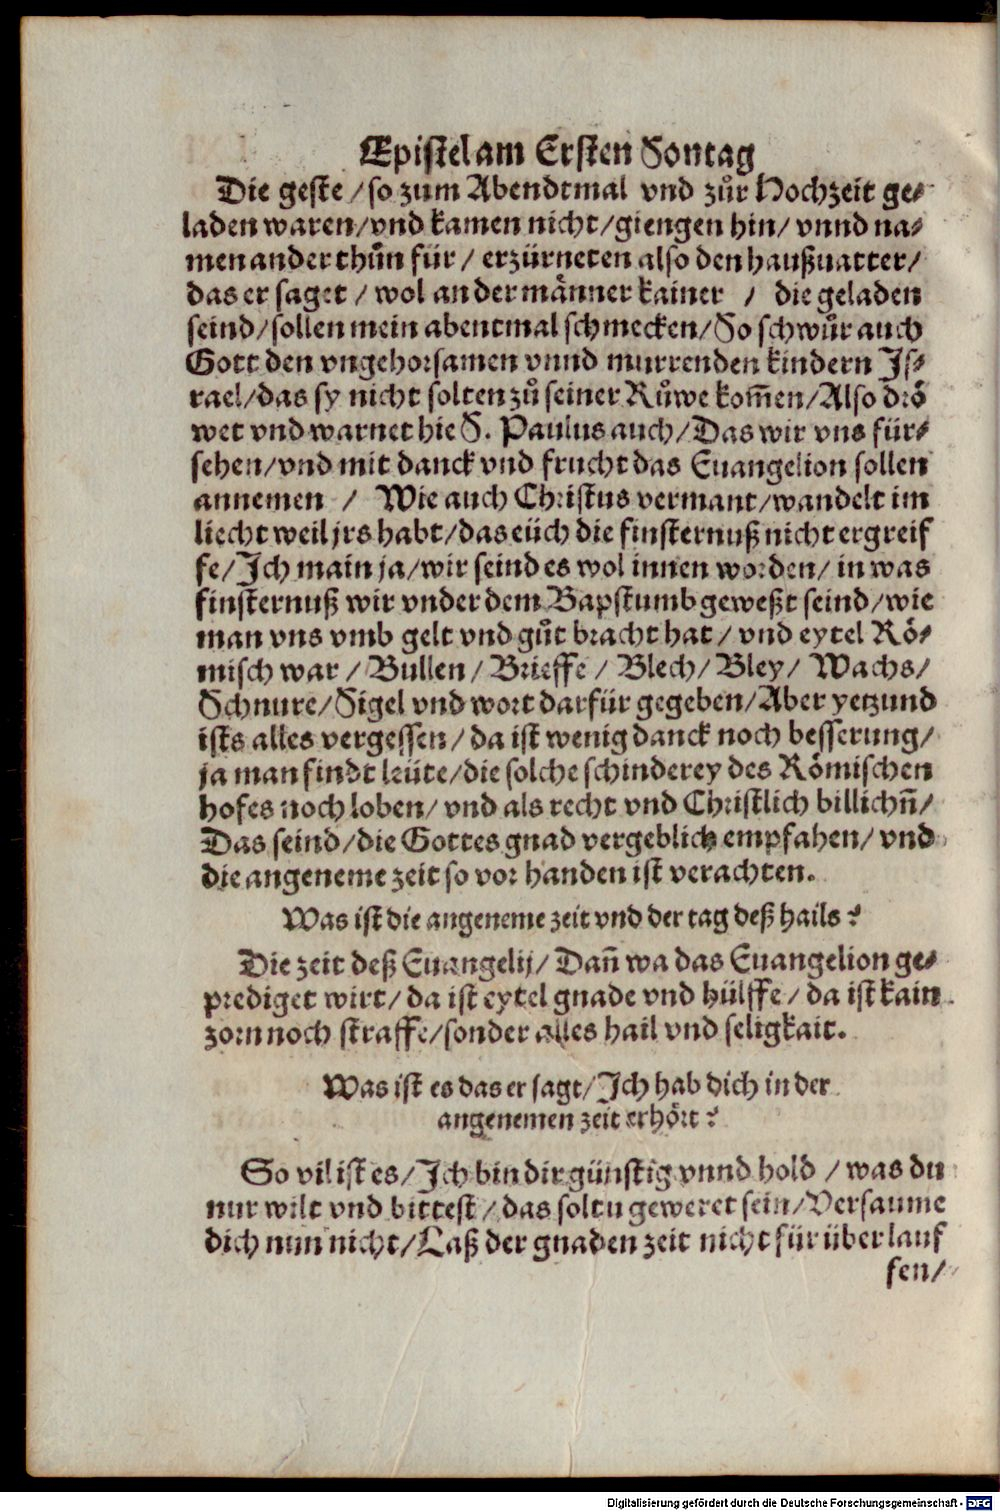 Epistel am Ersten Sontag
Die geste / so zum Abendtmal vnd zůr Hochzeit ge⸗
laden waren / vnd kamen nicht / giengen hin / vnnd na⸗
men ander thůn für / erzürneten also den haußuatter /
das er saget / wol an der männer kainer / die geladen
seind / sollen mein abentmal schmecken / So schwůr auch
Gott den vngehorsamen vnnd murrenden kindern Js⸗
rael / das sy nicht solten zů seiner Růwe kom̃en / Also drö
wet vnd warnet hie S. Paulus auch / Das wir vns für⸗
sehen / vnd mit danck vnd frucht das Euangelion sollen
annemen / Wie auch Christus vermant / wandelt im
liecht weil jrs habt / das eüch die finsternuß nicht ergreif
fe / Jch main ja / wir seind es wol innen worden / in was
finsternuß wir vnder dem Bapstumb geweßt seind / wie
man vns vmb gelt vnd gůt bracht hat / vnd eytel Rö⸗
misch war / Bullen / Brieffe / Blech / Bley / Wachs /
Schnure / Sigel vnd wort darfür gegeben / Aber yetzund
ists alles vergessen / da ist wenig danck noch besserung /
ja man findt leüte / die solche schinderey des Römischen
hofes noch loben / vnd als recht vnd Christlich billichñ /
Das seind / die Gottes gnad vergeblich empfahen / vnd
die angeneme zeit so vor handen ist verachten.
Was ist die angeneme zeit vnd der tag deß hails?
Die zeit deß Euangelij / Dañ wa das Euangelion ge⸗
prediget wirt / da ist eytel gnade vnd hülffe / da ist kain
zorn noch straffe / sonder alles hail vnd seligkait.
Was ist es das er sagt / Jch hab dich in der
angenemen zeit erhört?
So vil ist es / Jch bin dir günstig vnnd hold / was du
nur wilt vnd bittest / das soltu geweret sein / Versaume
dich nun nicht / Laß der gnaden zeit nicht für über lauf
fen /
Digitalisierung gefördert durch die Deutsche Forschungsgemeinschaft - DFG